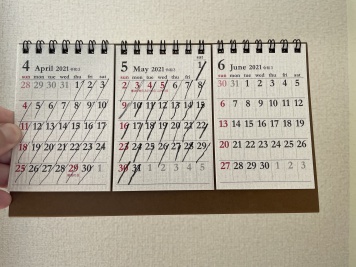 4 April 2021
sun mon tue wed thu fri sat
28 29 30 31 1 2 3
4 5 6 7 8 9 10
11 12 13 14 15 16 17
18 19 20 21 22 23 24
25 26 27 28 29 30 1
5 May 2021
sat
1
sun mon tue wed thu fri
2 3 4 5 6 7 8
9 10 11 12 13 14 15
16 17 18 19 20 21 22
23 24 25 26 27 28 29
30 31 1 2 3 4 5
6 June 2021
sun mon tue wed thu fri sat
30 31 1 2 3 4 5
6 7 8 9 10 11 12
13 14 15 16 17 18 19
20 21 22 23 24 25 26
27 28 29 30 1 2 3